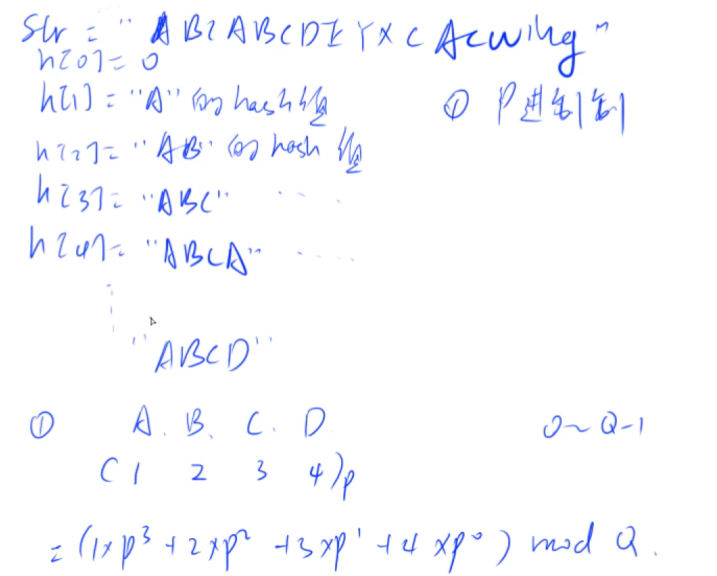 Str = "ABCABCDEYXCAcwing"
h[0] = 0
h[1] = "A" 的 hash 值
① P进制
h[2] = "AB" 的 hash 值
h[3] = "ABC" ....
h[4] = "ABCA" ....
"ABCD"
① A. B. C. D
0~Q-1
(1 2 3 4)p
= (1×p³ + 2×p² + 3×p¹ + 4×p⁰) mod Q.